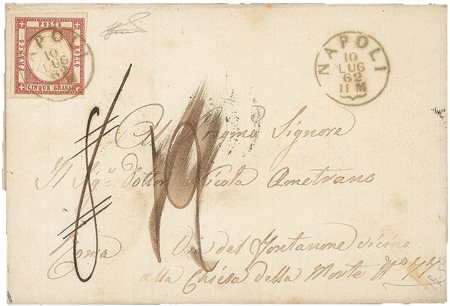 FRANCO
POSTE
BOLLO
CINQUE GRANA
POLI
10
LUG
62
M
NAPOLI
10
LUG
62
11 M
Al Signore
Il Sig. Dottor Nicola Ametrano
Roma Via del Fontanone vicino
alla Chiesa della Morte